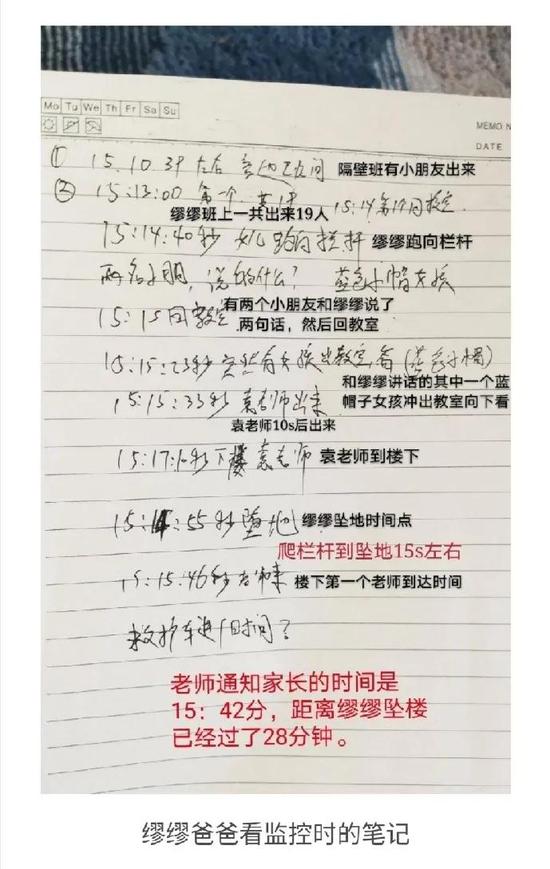 Mo Tu We Th Fr Sa Su
MEMO N
DATE
① 15.10 39 左右 间 隔壁班有小朋友出来
② 15:13:00 第一个
缪缪班上一共出来19人 15:14第19回教室
15:14:40秒 跑向栏杆 缪缪跑向栏杆
两名小朋,说的什么? 蓝色小帽女孩
有两个小朋友和缪缪说了
15:15回教室 两句话,然后回教室
15:15:23秒 突然有女孩出教室看(蓝色小帽)
和缪缪讲话的其中一个蓝
15:15:33秒 袁老师出来 帽子女孩冲出教室向下看
袁老师10s后出来
15:17:10秒下楼 袁老师 袁老师到楼下
15:14:55秒坠地 缪缪坠地时间点
爬栏杆到坠地15s左右
15:15:46秒 楼下第一个老师到达时间
救护车进 时间?
老师通知家长的时间是
15:42分,距离缪缪坠楼
已经过了28分钟。
缪缪爸爸看监控时的笔记